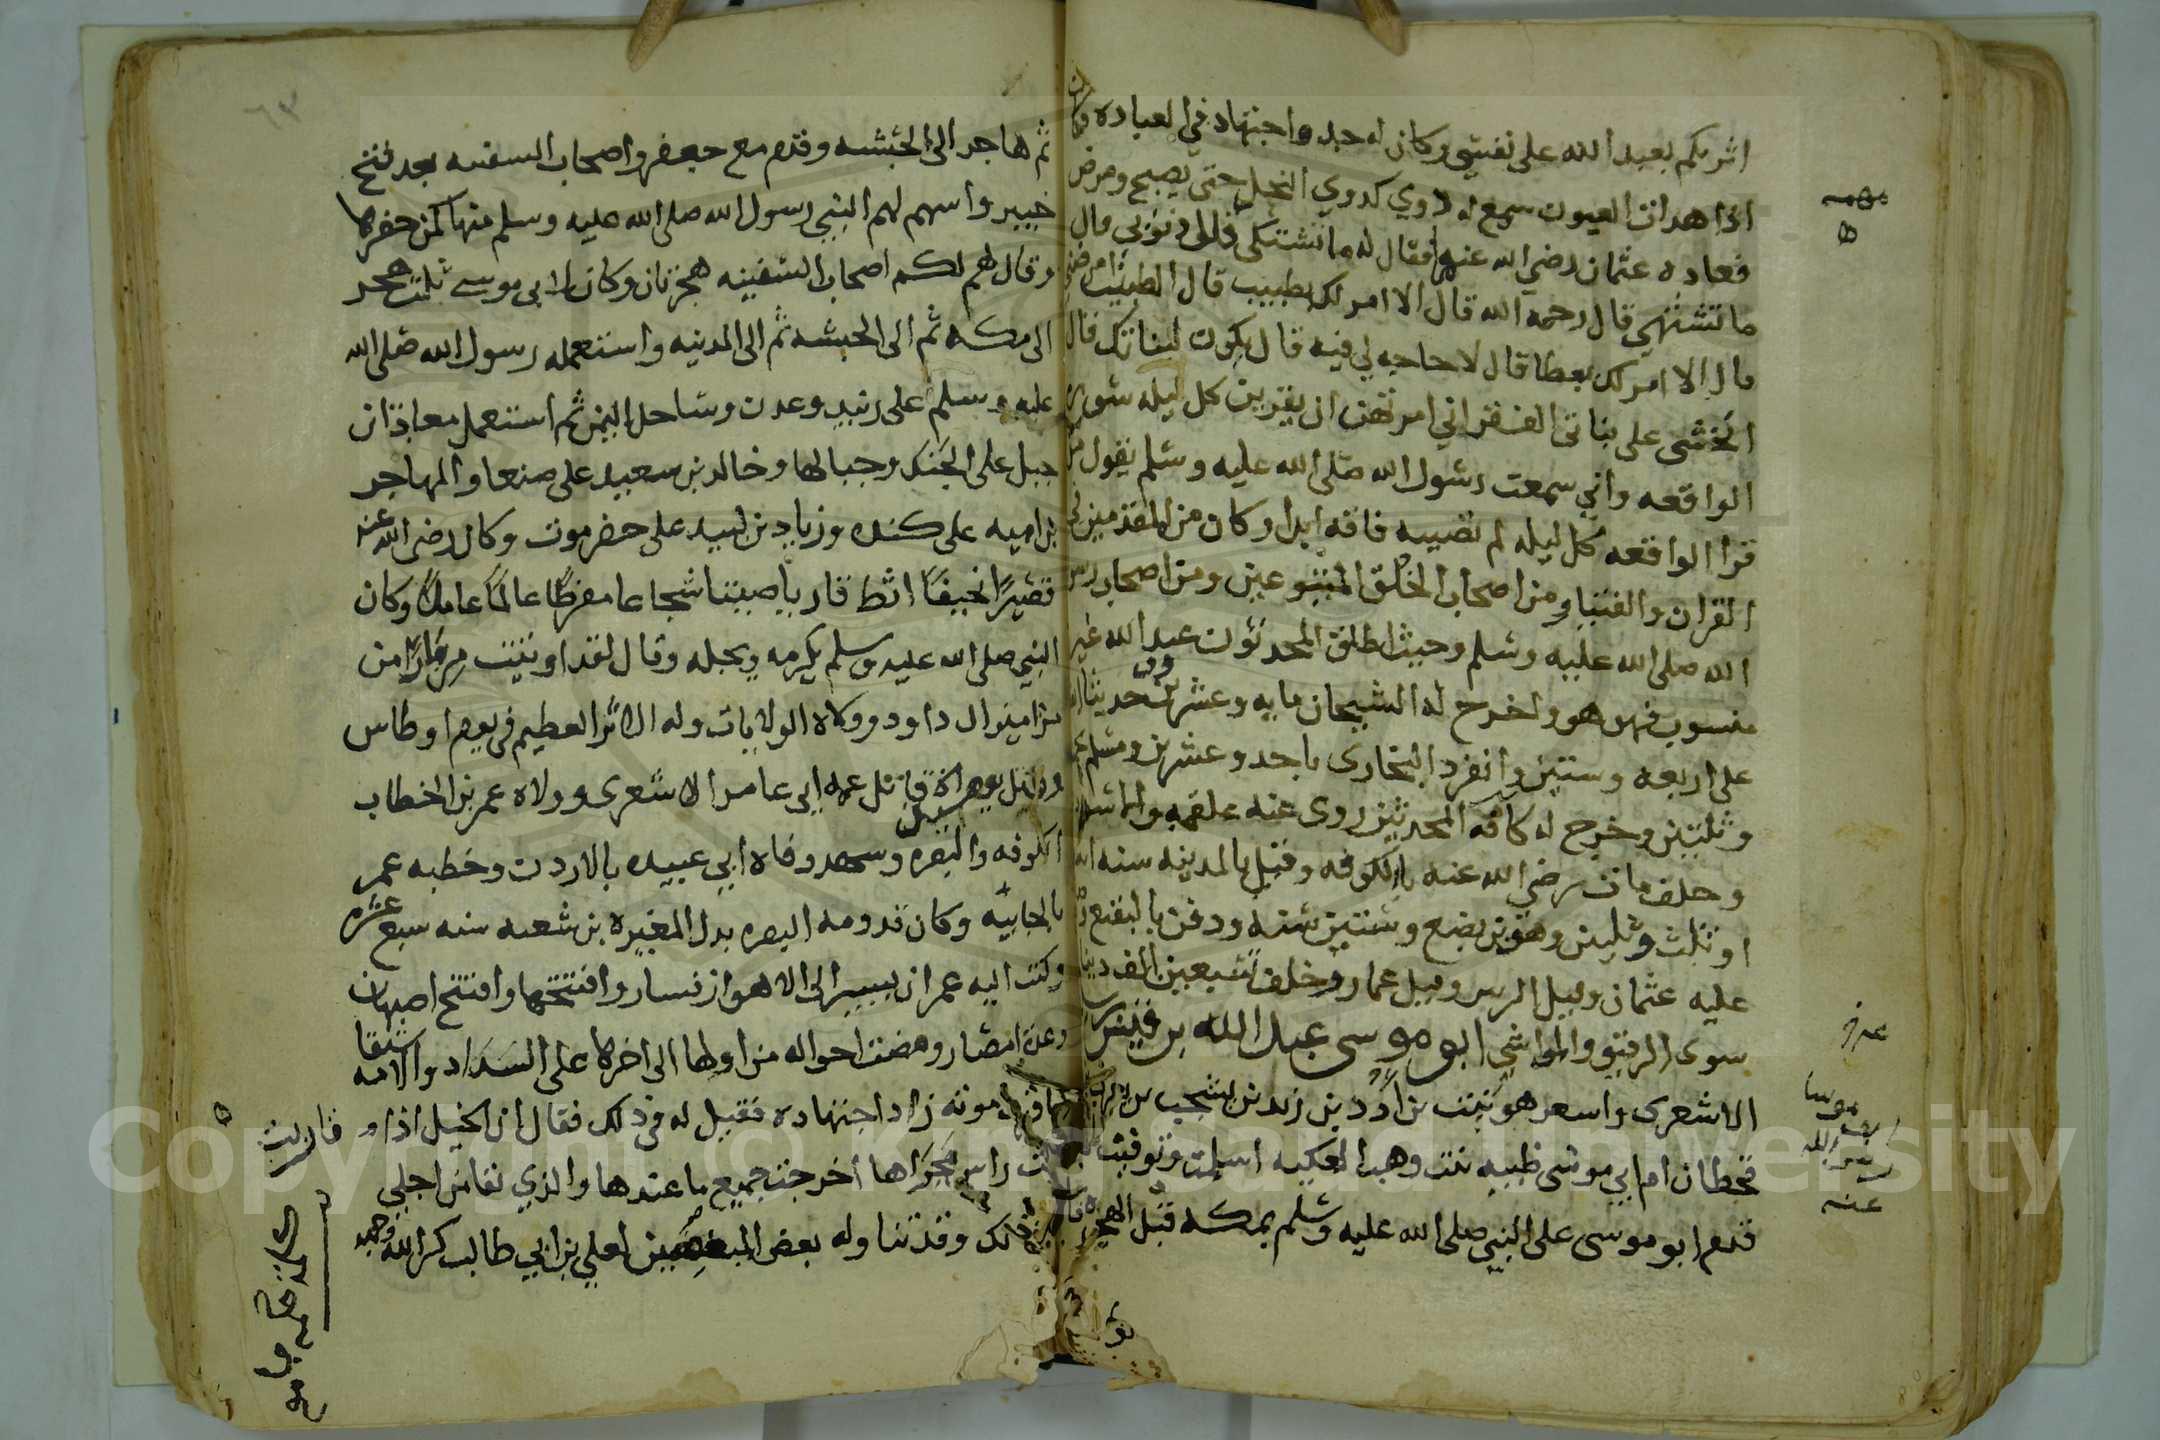 اثركم بعبد الله على نفسي وكان له جد واجتهاد في العباده وكان
اذا هدات العيون سمع له دوي كدوي النحل حتى يصبح ومرض
فعاده عثمان رضي الله عنهما فقال له ما تشتكي قال ذنوبي قال
ما تشتهي قال رحمه الله قال الا امر لك بطبيب قال الطبيب امرضني
قال الا امر لك بعطا قال لا حاجه لي فيه قال يكون لبناتك قال
اتخشى على بناتي الفقر اني امرتهن ان يقرين كل ليله سورة
الواقعه واني سمعت رسول الله صلى الله عليه وسلم يقول من
قرا الواقعه كل ليله لم تصيبه فاقه ابدا وكان من المقدمين في
القران والفتيا ومن اصحاب الخلق المتبوعين ومن اصحاب رسول
الله صلى الله عليه وسلم وحيث اطلق المحدثون عبد الله غير
منسوب فهو هو واخرج له الشيخان مايه وعشرين حديثا
على اربعه وستين وانفرد البخارى باحد وعشرين ومسلم
وثلثين وخرج له كافه المحدثين روى عنه علقمه
مات رضي الله عنه بالكوفه وقيل بالمدينه سنه
او ثلث وثلثين وهو بن بضع وستين سنه ودفن بالبقيع
عليه عثمان وقيل الزبير وقيل عمار وخلف تسعين الف دينار
سوى الرقيق والمواشي ابو موسى عبد الله بن قيس
الاشعرى واسعر هو نبت بن ادد بن زيد بن يشجب بن
قحطان ام ابي موسى ظبيه بنت وهب العكيه اسلمت وتوفيت
قدم ابو موسى على النبي صلى الله عليه وسلم بمكه قبل الهجره
مهمه
عرف
موسا
رضى الله
عنه
٦٣
ثم هاجر الى الحبشه وقدم مع جعفر واصحاب السفينه بعد فتح
خيبر واسهم لهم النبي رسول الله صلى الله عليه وسلم منها كمن حضرها
وقال لهم لكم اصحاب السفينه هجرتان وكان لابى موسى ثلث هجر
الى مكه ثم الى الحبشه ثم الى المدينه واستعمله رسول الله صلى الله
عليه وسلم على زبيد وعدن وساحل اليمن ثم استعمل معاذ بن
جبل على الجند وجبالها وخالد بن سعيد على صنعا والمهاجر
بن اميه على كنده وزياد بن لبيد على حضرموت وكان رضى الله عنه
قصيرا نحيفا اثط قاريا صيتا شجاعا مفرطا عالما عاملا وكان
النبي صلى الله عليه وسلم يكرمه ويجله وقال لقد اوتيت مزمارا من
مزامير ال داود وولاه الولايات وله الاثر العظيم فى يوم اوطاس
قاتل عمه ابي عامر الاشعرى وولاه عمر بن الخطاب
الكوفه والبصره وشهد وفاه ابي عبيده بالاردن وخطبه عمر
بالجابيه وكان قدومه البصره بدل المغيره بن شعبه سنه سبع عشره
وكتب اليه عمر ان يسير الى الاهواز فسار وافتتحها وافتتح اصبهان
وعدة امصار ومضت احواله من اولها الى اخرها على السداد والاستقامه
موته زاد اجتهاده فقيل له في ذلك فقال ان الخيل اذا قاربت
راس مجراها اخرجت جميع ما عندها والذي بقا من اجلي
ذلك وقد تناوله بعض المبغضين لعلي بن ابي طالب كرم الله وجهه